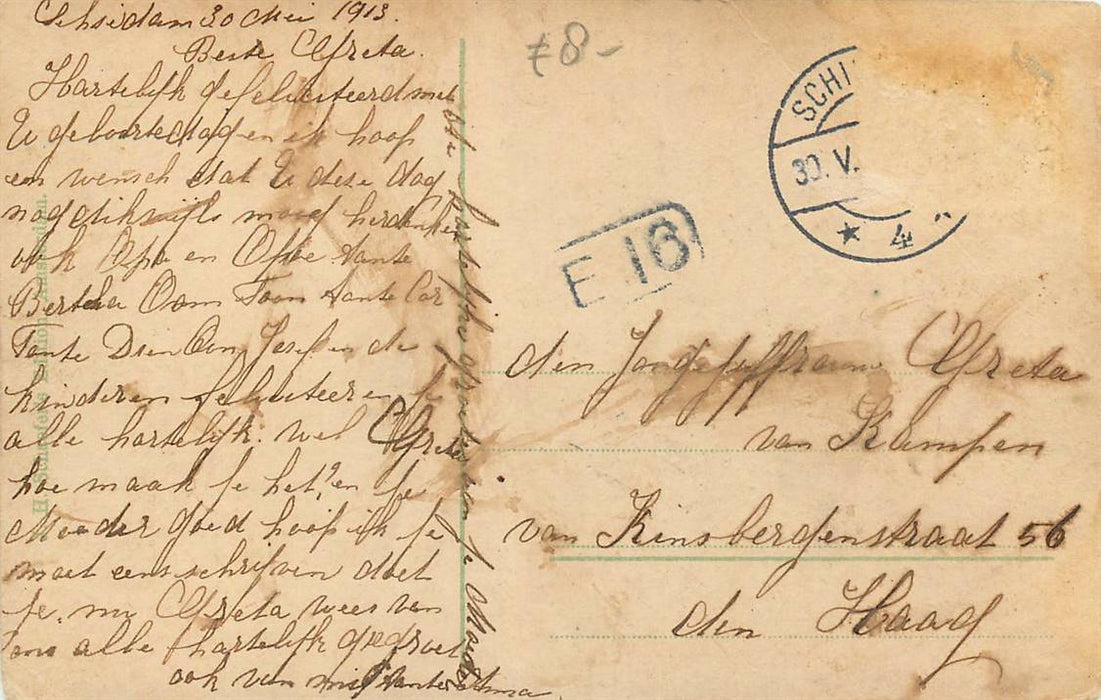 Schiedam 30 Mei 1913.
Beste Greta.
Hartelijk gefeliciteerd met
U geboortedag en ik hoop
en wensch dat U deze dag
nog dikwijls moog herdenken
ook Opa en Tante
Bertha Oom Toon tante Cor
Tante Dien Oom Josef en de
kinderen feliciteeren je
alle hartelijk. wel Greta
hoe maak je het? en je
Moeder goed hoop ik je
moet eens schrijven doet
je. nu Greta wees van
ons alle hartelijk gegroet
ook van mij tante
de hartelijke groeten aan je Moeder
£8-
SCHI
30. V.
4
E 16
den Jongejuffrouw Greta
van Kampen
van Kinsbergenstraat 56
den Haag